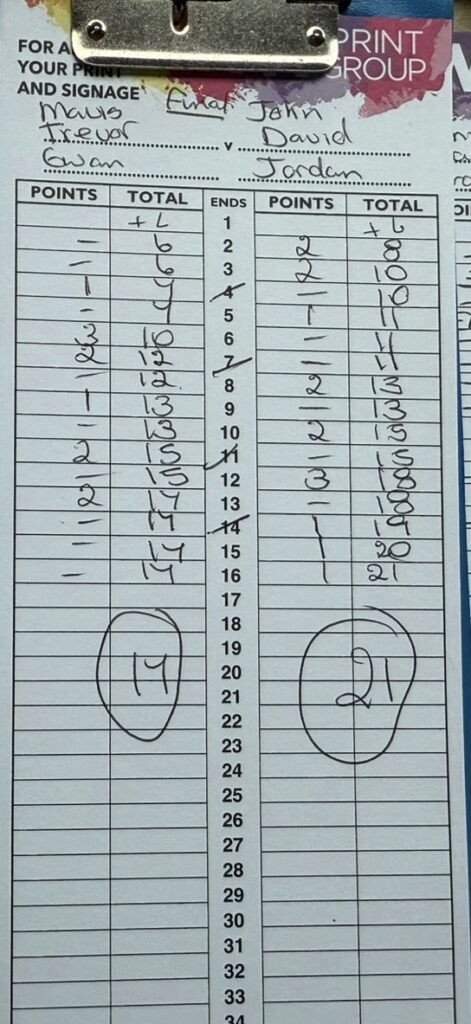 FOR A
YOUR PRINT
AND SIGNAGE
PRINT
GROUP
Mavis Final John
Trevor v David
Ewan Jordan
POINTS TOTAL ENDS POINTS TOTAL
1 + 6
- 6 2 2 8
- 6 3 2 10
1 7 4 - 10
- 7 5 1 11
3 10 6 - 11
2 12 7 - 11
- 12 8 2 13
1 13 9 - 13
- 13 10 2 15
2 15 11 - 15
- 15 12 3 18
2 17 13 - 18
- 17 14 1 19
- 17 15 1 20
- 17 16 1 21
17
18
19
17 20 21
21
22
23
24
25
26
27
28
29
30
31
32
33
34